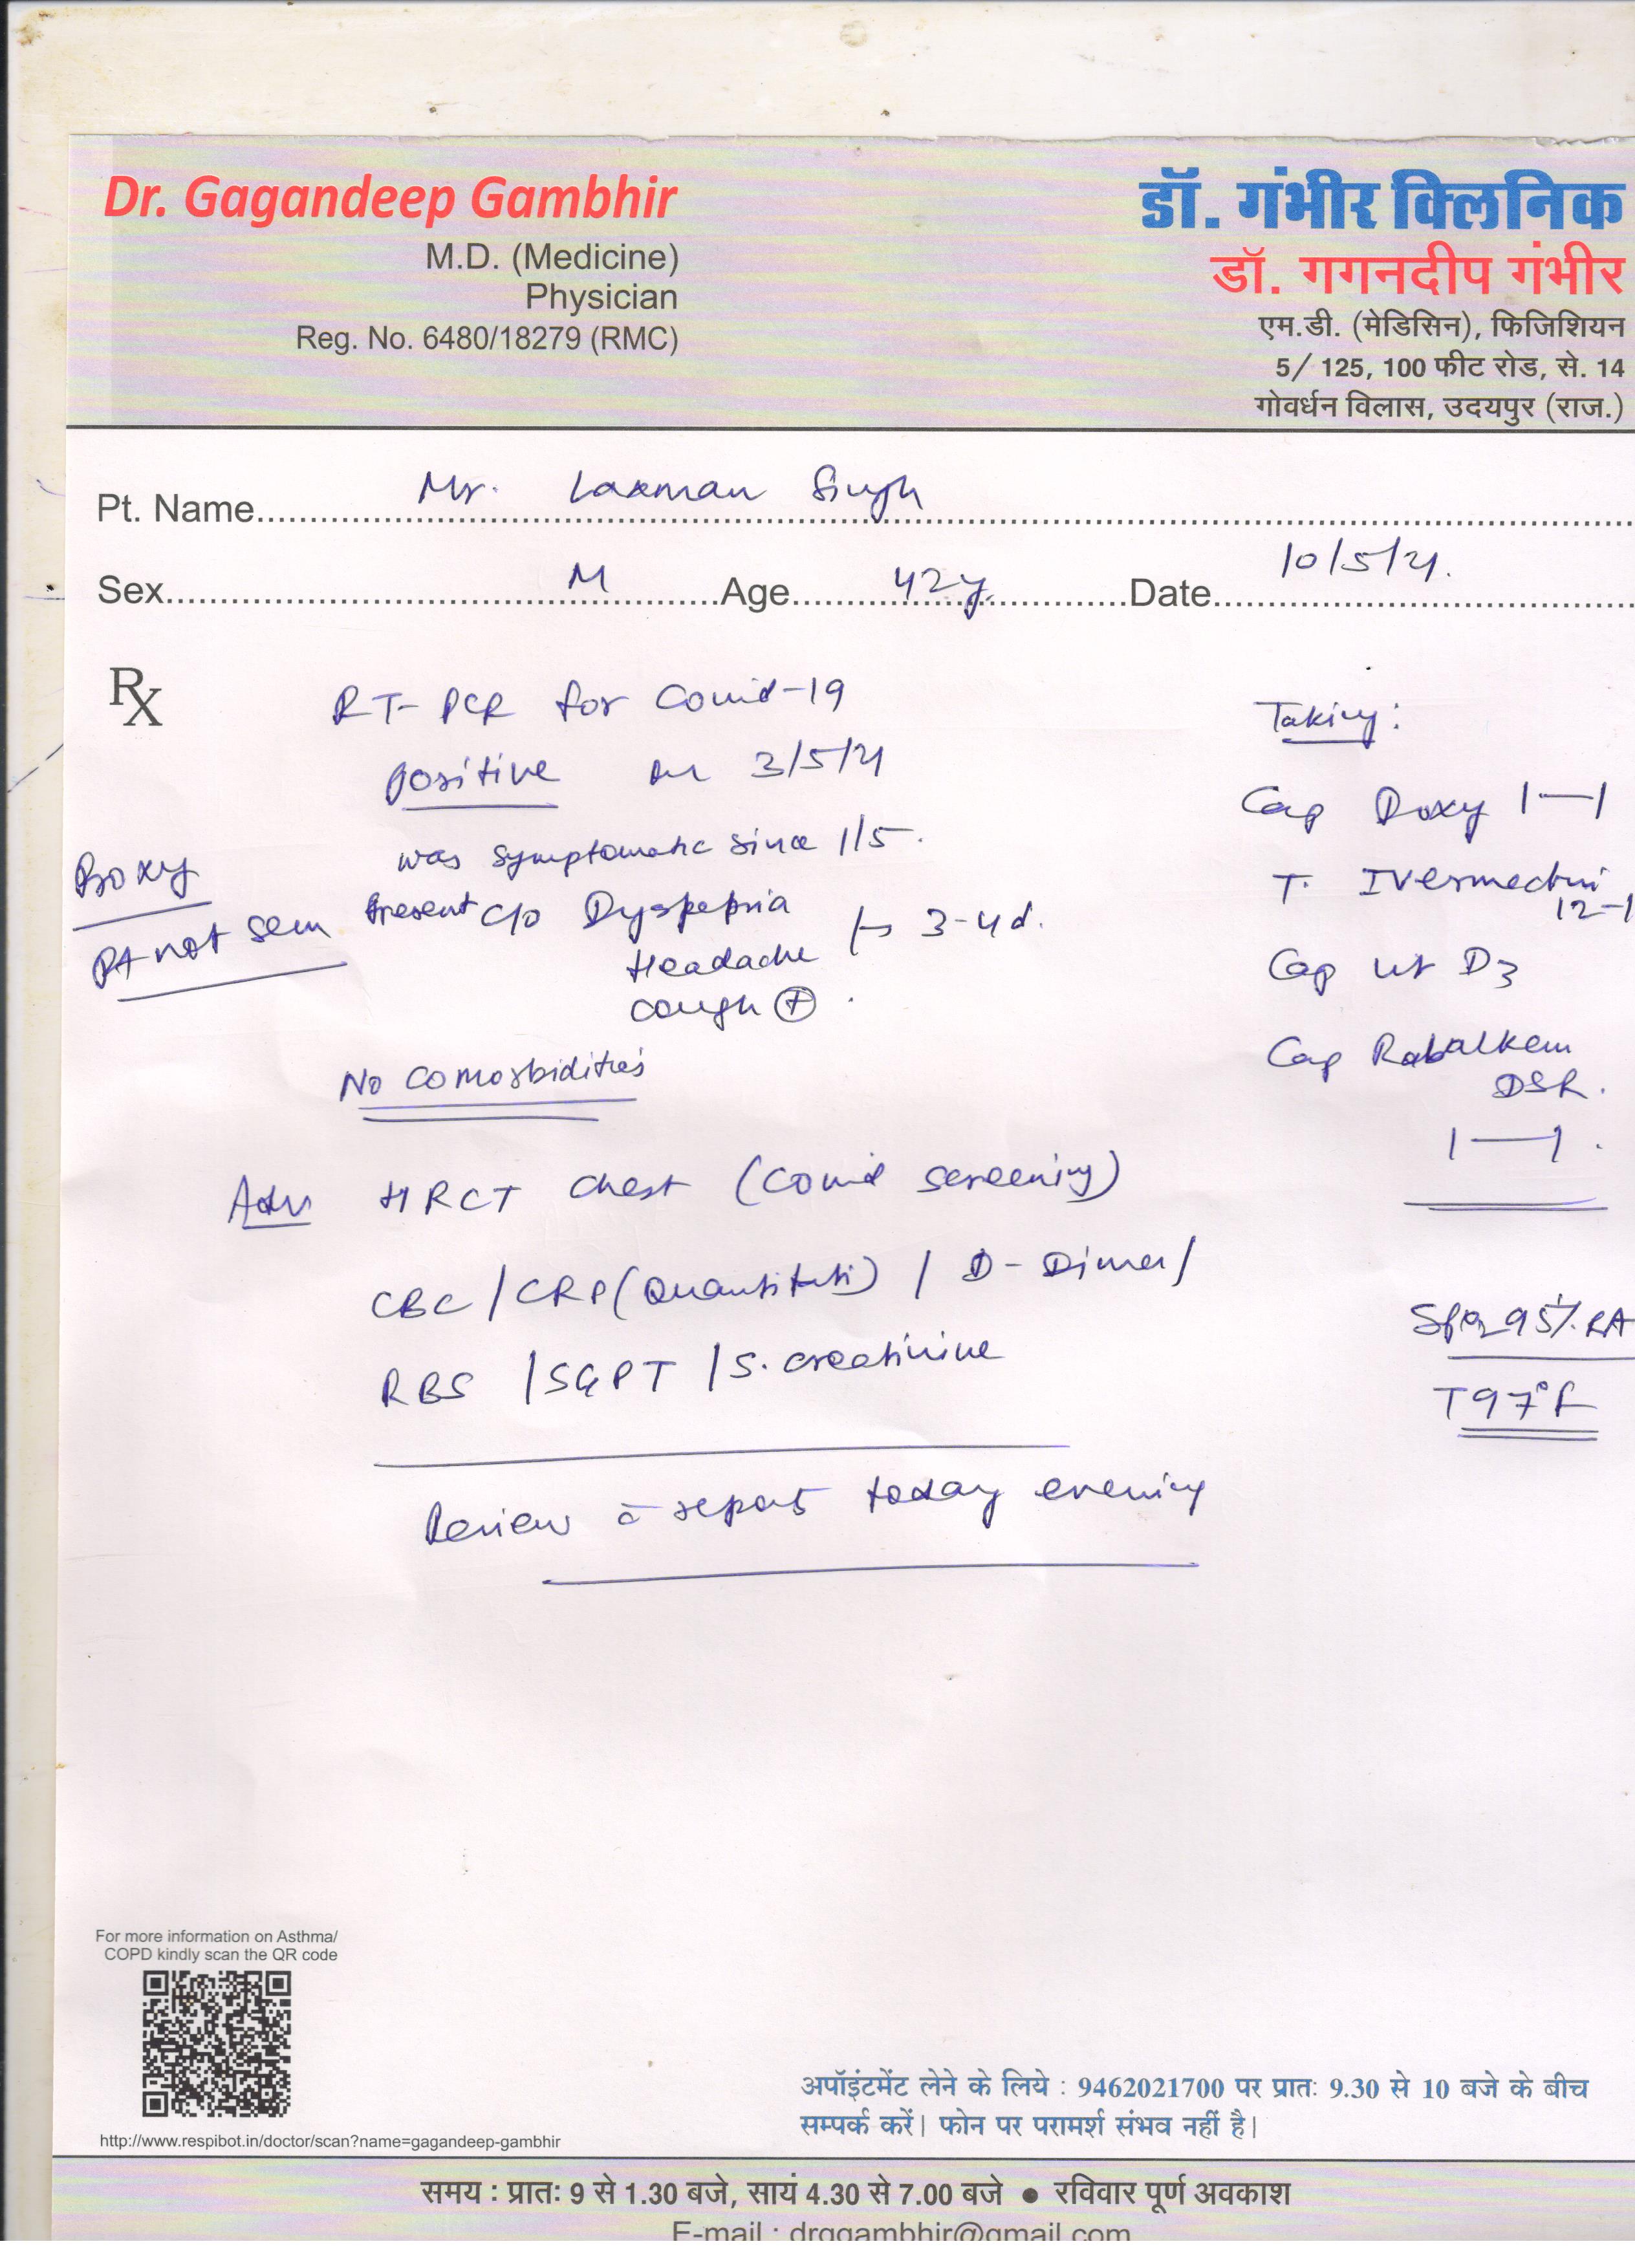 Dr. Gagandeep Gambhir
M.D. (Medicine)
Physician
Reg. No. 6480/18279 (RMC)
डॉ. गंभीर क्लिनिक
डॉ. गगनदीप गंभीर
एम.डी. (मेडिसिन), फिजिशियन
5/ 125, 100 फीट रोड, से. 14
गोवर्धन विलास, उदयपुर (राज.)
Pt. Name Mr. Laxman Singh
Sex M Age 42y. Date 10/5/21.
Rx
RT-PCR for Covid-19
positive on 3/5/21
was symptomatic since 1/5.
Present c/o Dyspepsia
Headache } 3-4d.
Cough ⊕.
Proxy
Pt not seen
No Comorbidities
Adv HRCT Chest (Covid Screening)
CBC / CRP (Quantitati) / D-Dimer /
RBS / SGPT / S. creatinine
Review c̄ report today evening
Taking:
Cap Doxy 1—1
T. Ivermectin
12-1
Cap Vit D3
Cap Rabalkem
DSR.
1—1.
SpO2 95% RA
T 97°F
For more information on Asthma/
COPD kindly scan the QR code
http://www.respibot.in/doctor/scan?name=gagandeep-gambhir
अपॉइंटमेंट लेने के लिये : 9462021700 पर प्रातः 9.30 से 10 बजे के बीच
सम्पर्क करें। फोन पर परामर्श संभव नहीं है।
समय : प्रातः 9 से 1.30 बजे, सायं 4.30 से 7.00 बजे ● रविवार पूर्ण अवकाश
E-mail : drggambhir@gmail.com